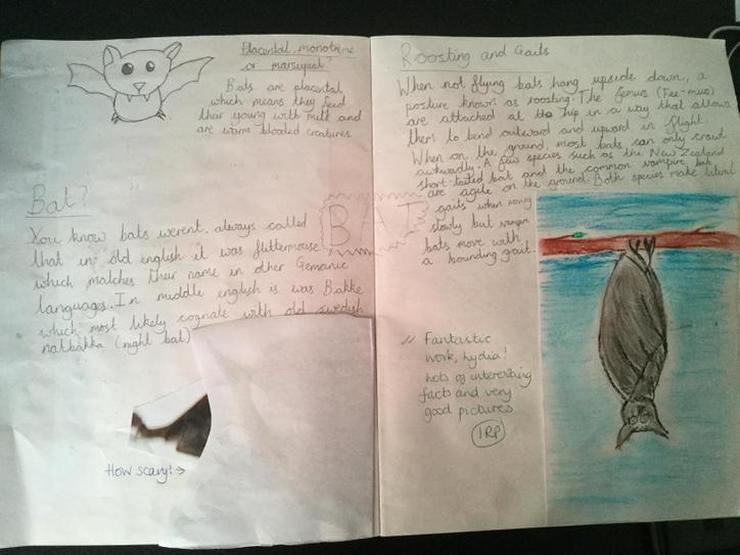 Placental, monotreme
or marsupial?
Bats are placental
which means they feed
their young with milk and
are warm blooded creatures
Bat?
You know bats werent always called
that in old english it was fluttermouse
which matches their name in other Gemanic
languages. In middle english is was Bakke
which most likely cognate with old swedish
natbakka (night bat)
How scary! →
BAT
Roosting and Gaits
When not flying bats hang upside down, a
posture known as roosting. The femurs (Fee-murs)
are attached at the hip in a way that allows
them to bend outward and upward in flight.
When on the ground, most bats can only crawl
awkwardly. A few species such as the New Zealand
short tailed bat and the common vampire bat
are agile on the ground. Both species make lateral
gaits when moving
slowly but vampire
bats move with
a bounding gait.
// Fantastic
work, Lydia!
Lots of interesting
facts and very
good pictures
1RP